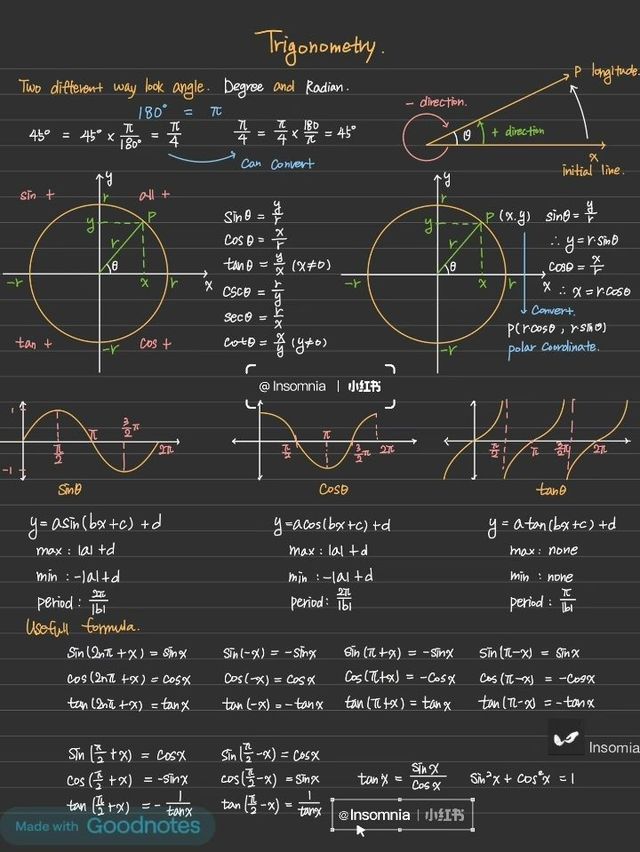 Trigonometry.
Two different way look angle. Degree and Radian.
180° = π
45° = 45° × π/180° = π/4
π/4 = π/4 × 180/π = 45°
Can convert
- direction.
P longitude.
θ
+ direction
x
initial line.
sin +
all +
tan +
cos +
y
r
y
P
r
θ
-r
x
r
x
-r
sinθ = y/r
cosθ = x/r
tanθ = y/x (x≠0)
cscθ = r/y
secθ = r/x
cotθ = x/y (y≠0)
y
r
y
P (x.y)
r
θ
-r
x
r
x
-r
sinθ = y/r
∴ y = r·sinθ
cosθ = x/r
∴ x = r·cosθ
Convert.
P(rcosθ, rsinθ)
polar coordinate.
@Insomnia | 小红书
1
-1
π/2
π
3/2π
2π
sinθ
π/2
π
3/2π
2π
cosθ
π/2
π
3/2π
2π
tanθ
y = asin(bx+c)+d
max : |a|+d
min : -|a|+d
period : 2π/|b|
y = acos(bx+c)+d
max : |a|+d
min : -|a|+d
period : 2π/|b|
y = atan(bx+c)+d
max : none
min : none
period : π/|b|
Usefull formula.
sin(2nπ+x) = sinx sin(-x) = -sinx sin(π+x) = -sinx sin(π-x) = sinx
cos(2nπ+x) = cosx cos(-x) = cosx cos(π+x) = -cosx cos(π-x) = -cosx
tan(2nπ+x) = tanx tan(-x) = -tanx tan(π+x) = tanx tan(π-x) = -tanx
Insomnia
sin(π/2+x) = cosx sin(π/2-x) = cosx
cos(π/2+x) = -sinx cos(π/2-x) = sinx tanx = sinx/cosx sin²x + cos²x = 1
tan(π/2+x) = -1/tanx tan(π/2-x) = 1/tanx
@Insomnia | 小红书
Made with Goodnotes